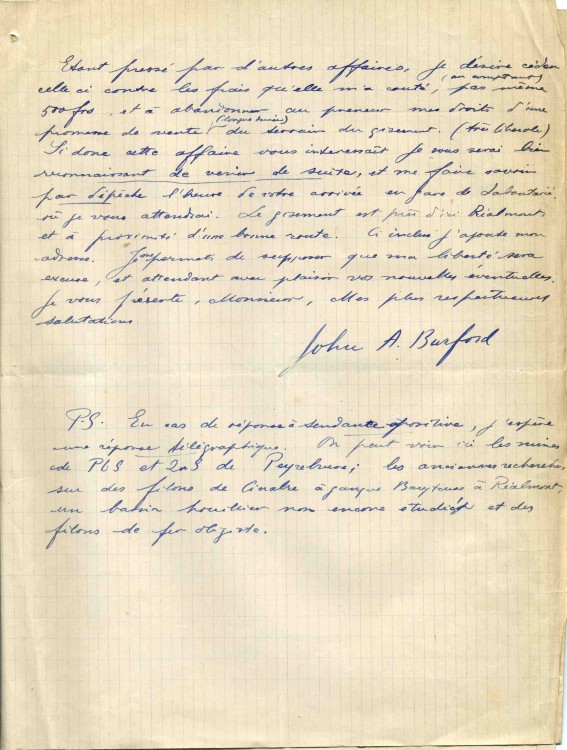 Etant pressé par d'autres affaires, je désire céder
(au comptant)
celle ci contre les frais qu'elle m'a couté, pas même
500 frs, et à abandonner au preneur mes droits d'une
promesse de vente du terrain du gisement. (très libérale)
Si donc cette affaire vous interessait je vous serai bien
reconnaissant de venir de suite, et me faire savoir
par dépêche l'heure de votre arrivée en gare de Laboutarié
où je vous attendrai. Le gisement est près d'ici Réalmont
et à proximité d'une bonne route. Ci inclus j'ajoute mon
adresse. Je permets de supposer que ma liberté sera
excuse, et attendant avec plaisir vos nouvelles éventuelles,
Je vous présente, Monsieur, Mes plus respectueuses
salutations
John A. Burford
P.S. En cas de réponse à tendance positive, j'espère
une réponse télégraphique. On peut voir ici les mines
de PbS et ZnS de Peyrebrune; les anciennes recherches
sur des filons de Cinabre à gangue Barytique à Réalmont,
un bassin houiller non encore étudié et des
filons de fer oligiste.